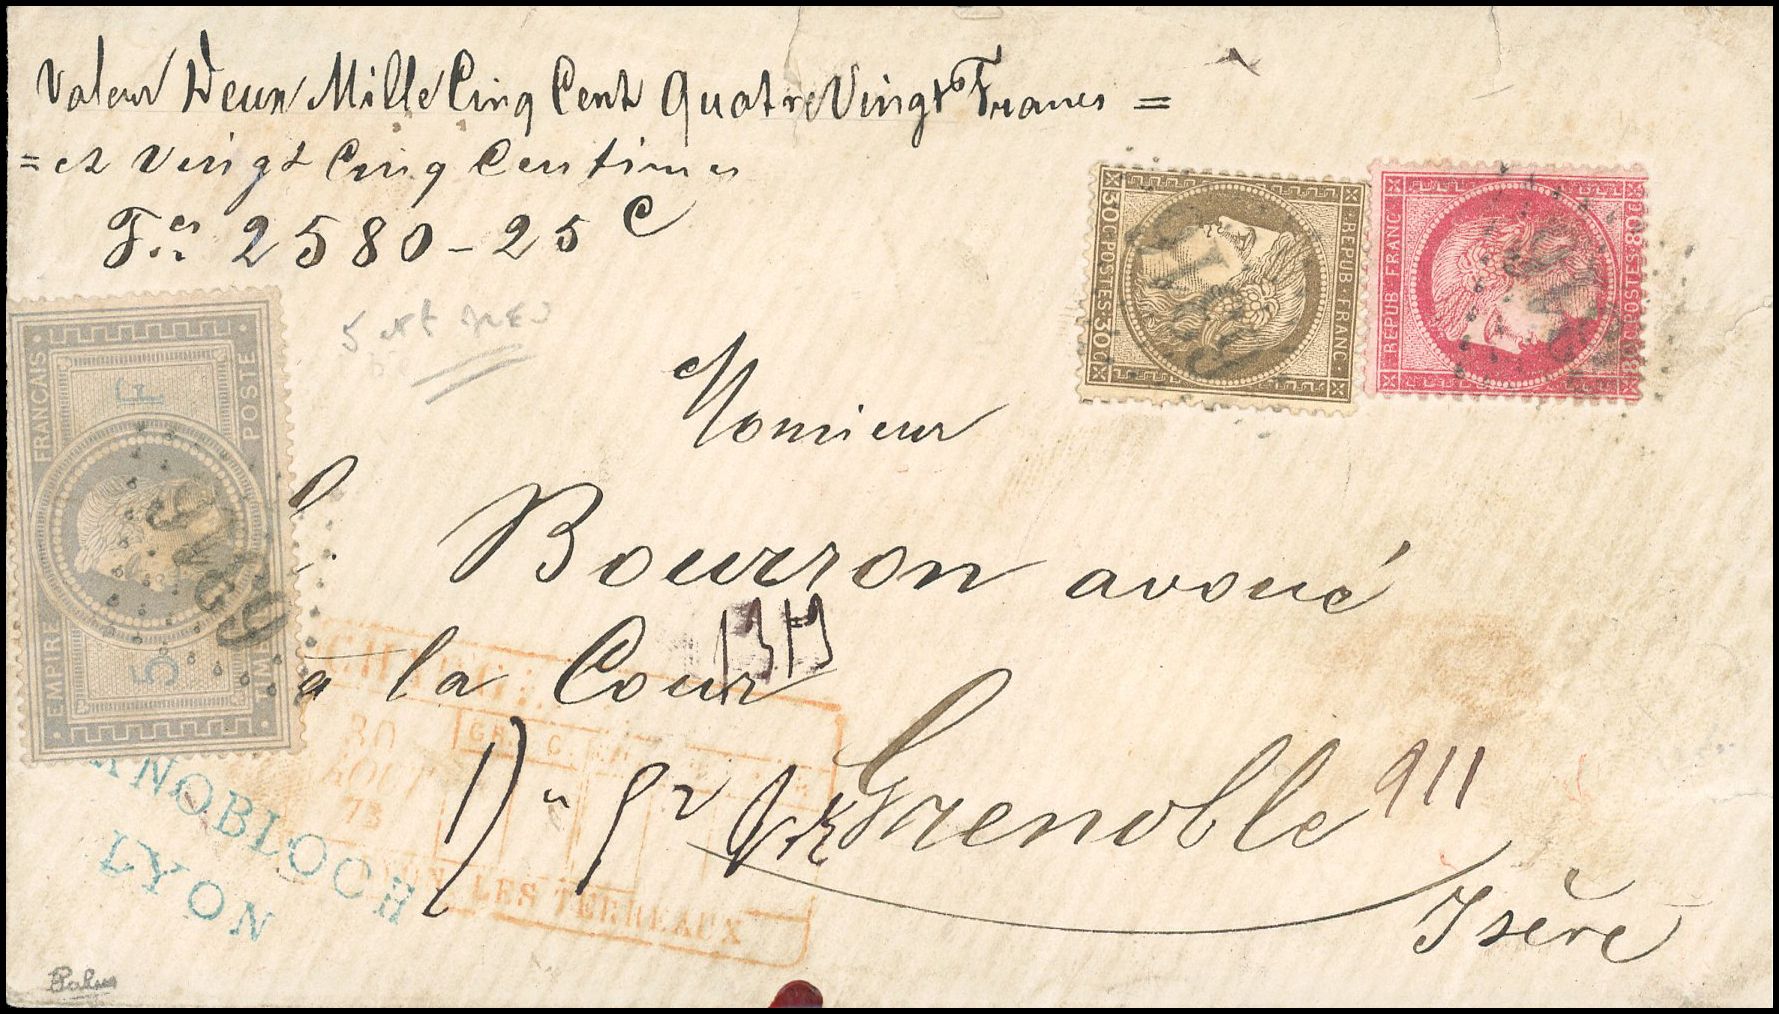 Valeur Deux Mille Cinq Cent Quatre Vingts Francs =
= et Vingt Cinq Centimes
Fcs 2580-25 c
30 C. POSTES 30 C.
REPUB. FRANC.
REPUB. FRANC.
80 C. POSTES 80 C.
EMPIRE FRANCAIS
5 F
TIMBRE POSTE
Monsieur
Bourron avoué
à la Cour
Grenoble
Isère
911
30
AOUT
73
LYON LES TERREAUX
KNOBLOCH
LYON